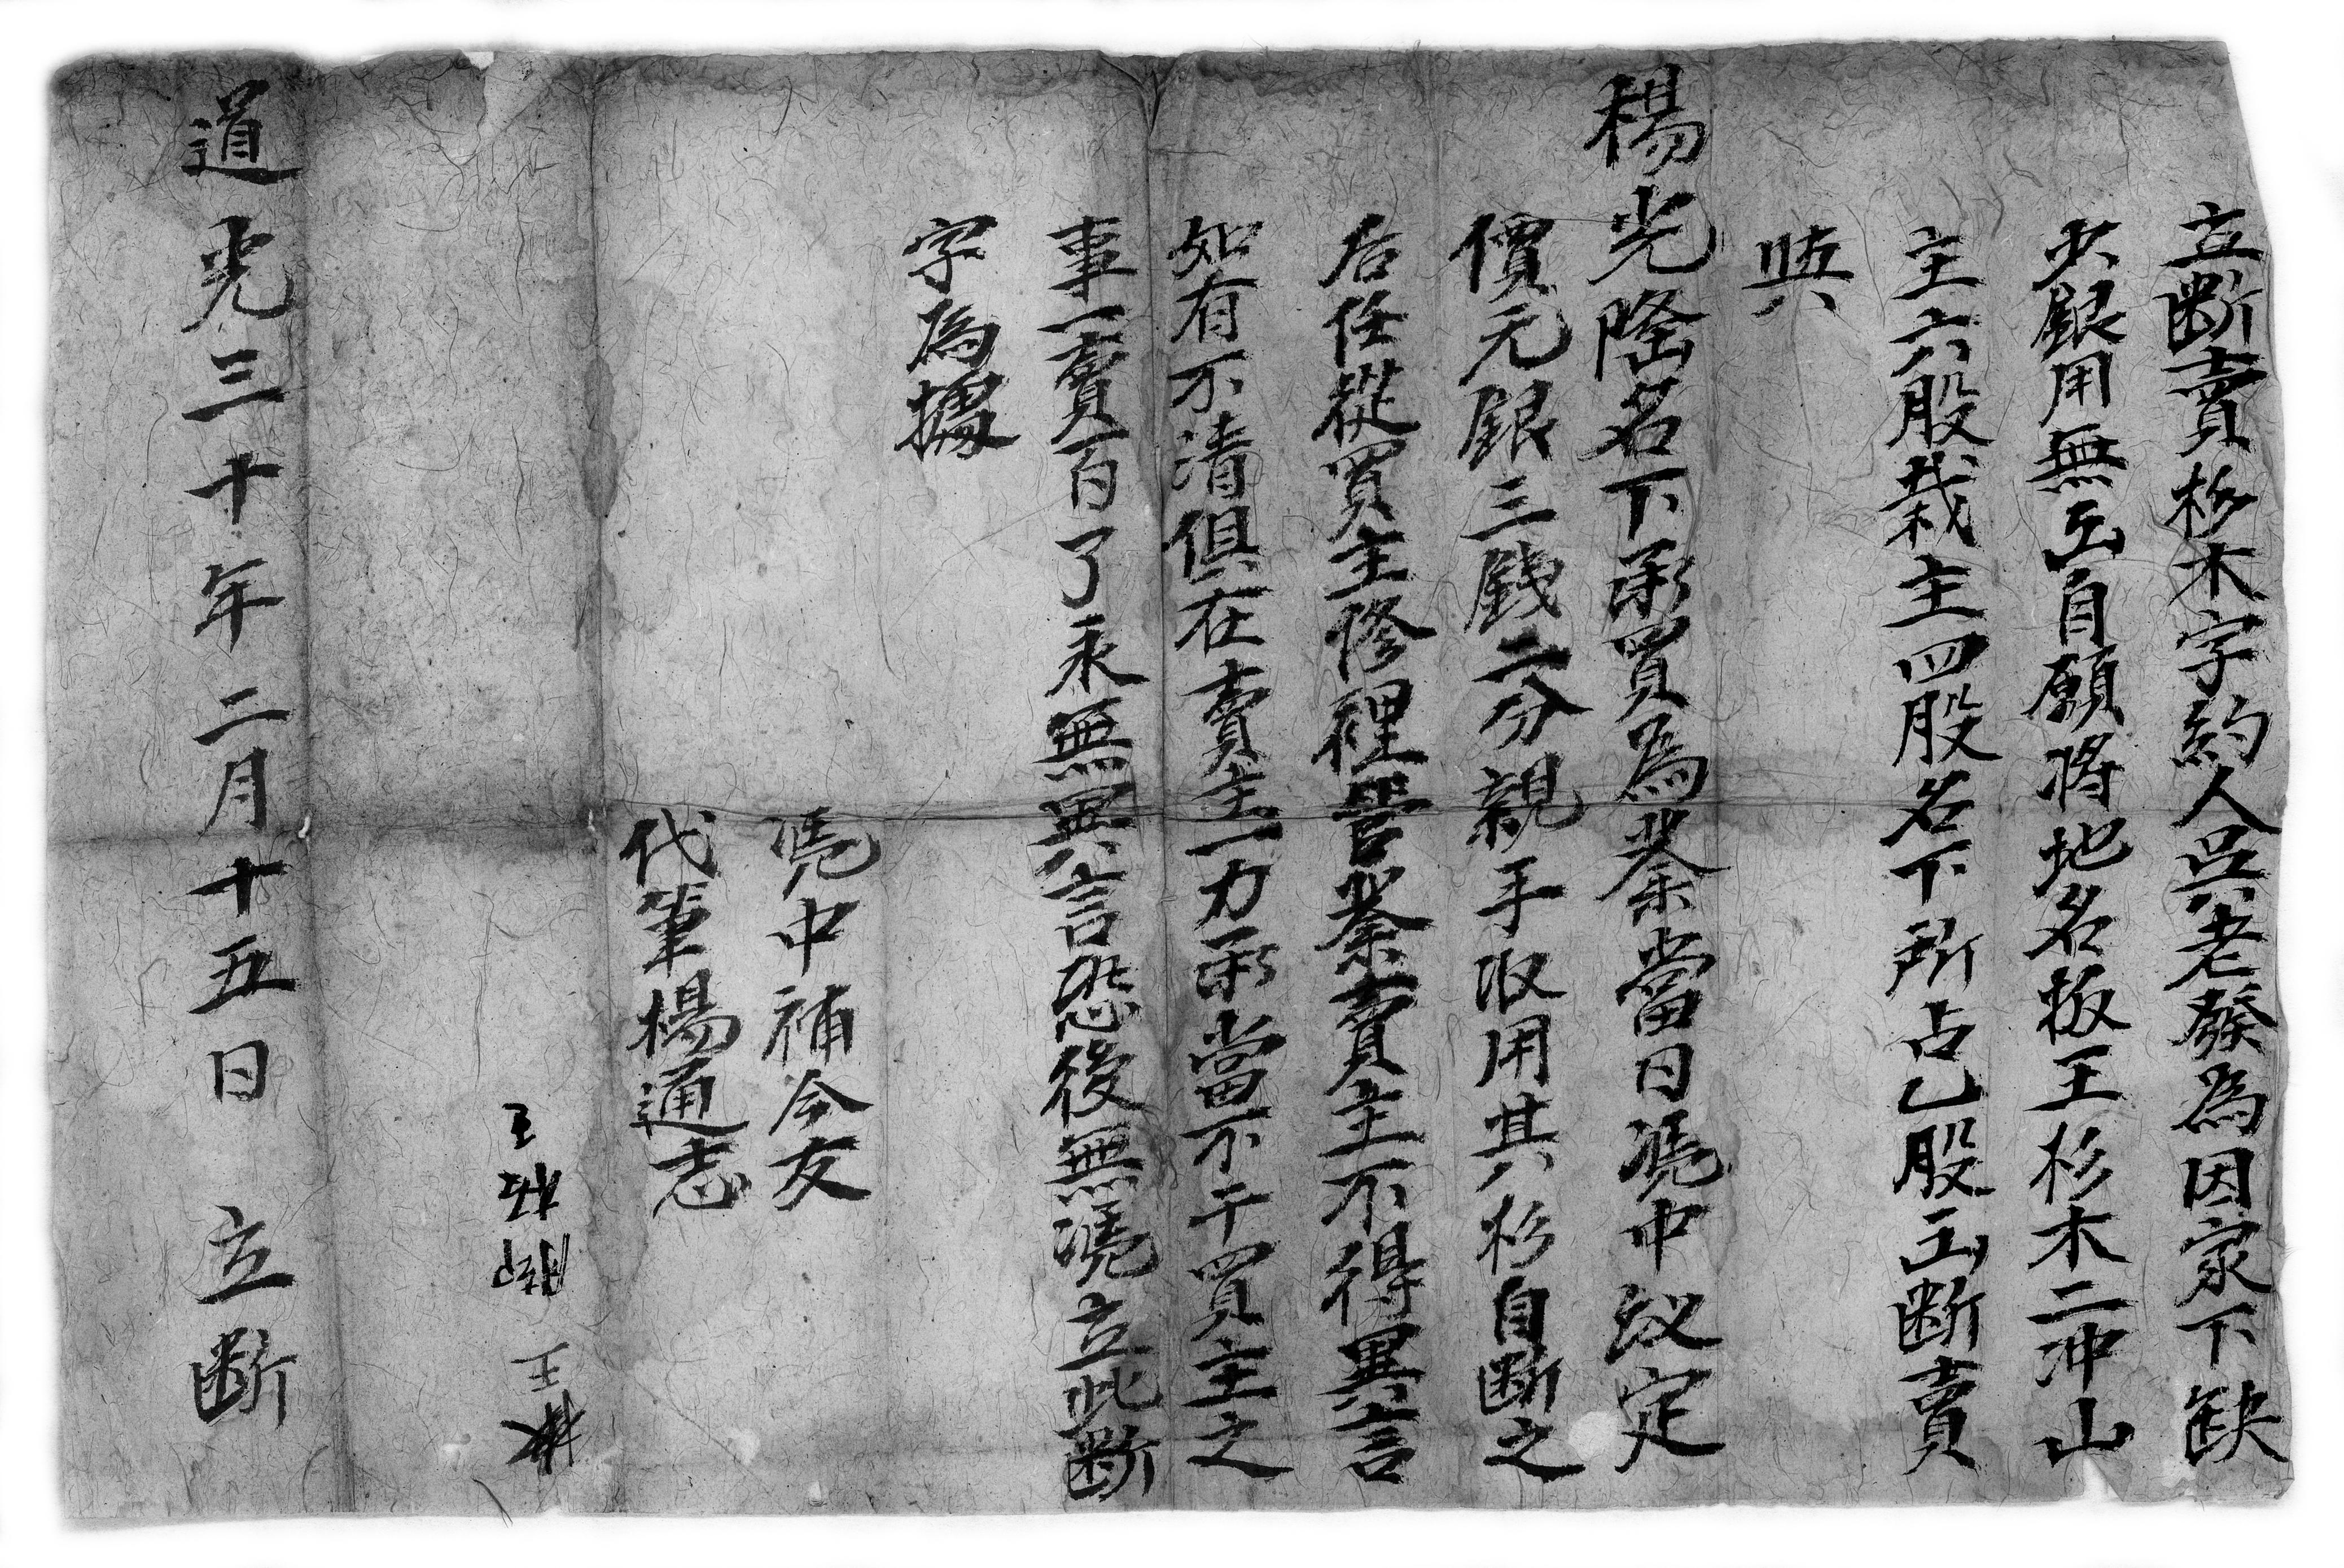 立断賣杉木字約人吳老發為因家下缺
少銀用無出自願將地名板王杉木二冲山
主六股栽主四股名下所占乙股出断賣
與
楊光隆名下承買為業當日憑中议定
價元銀三錢二分親手收用其杉自断之
后任從買主修裡管業賣主不得異言
如有不清俱在賣主一力承當不干買主之
事一賣百了永無異言恐後無憑立此断
字為據
憑中補今友
代筆楊通志
道光三十年二月十五日 立断